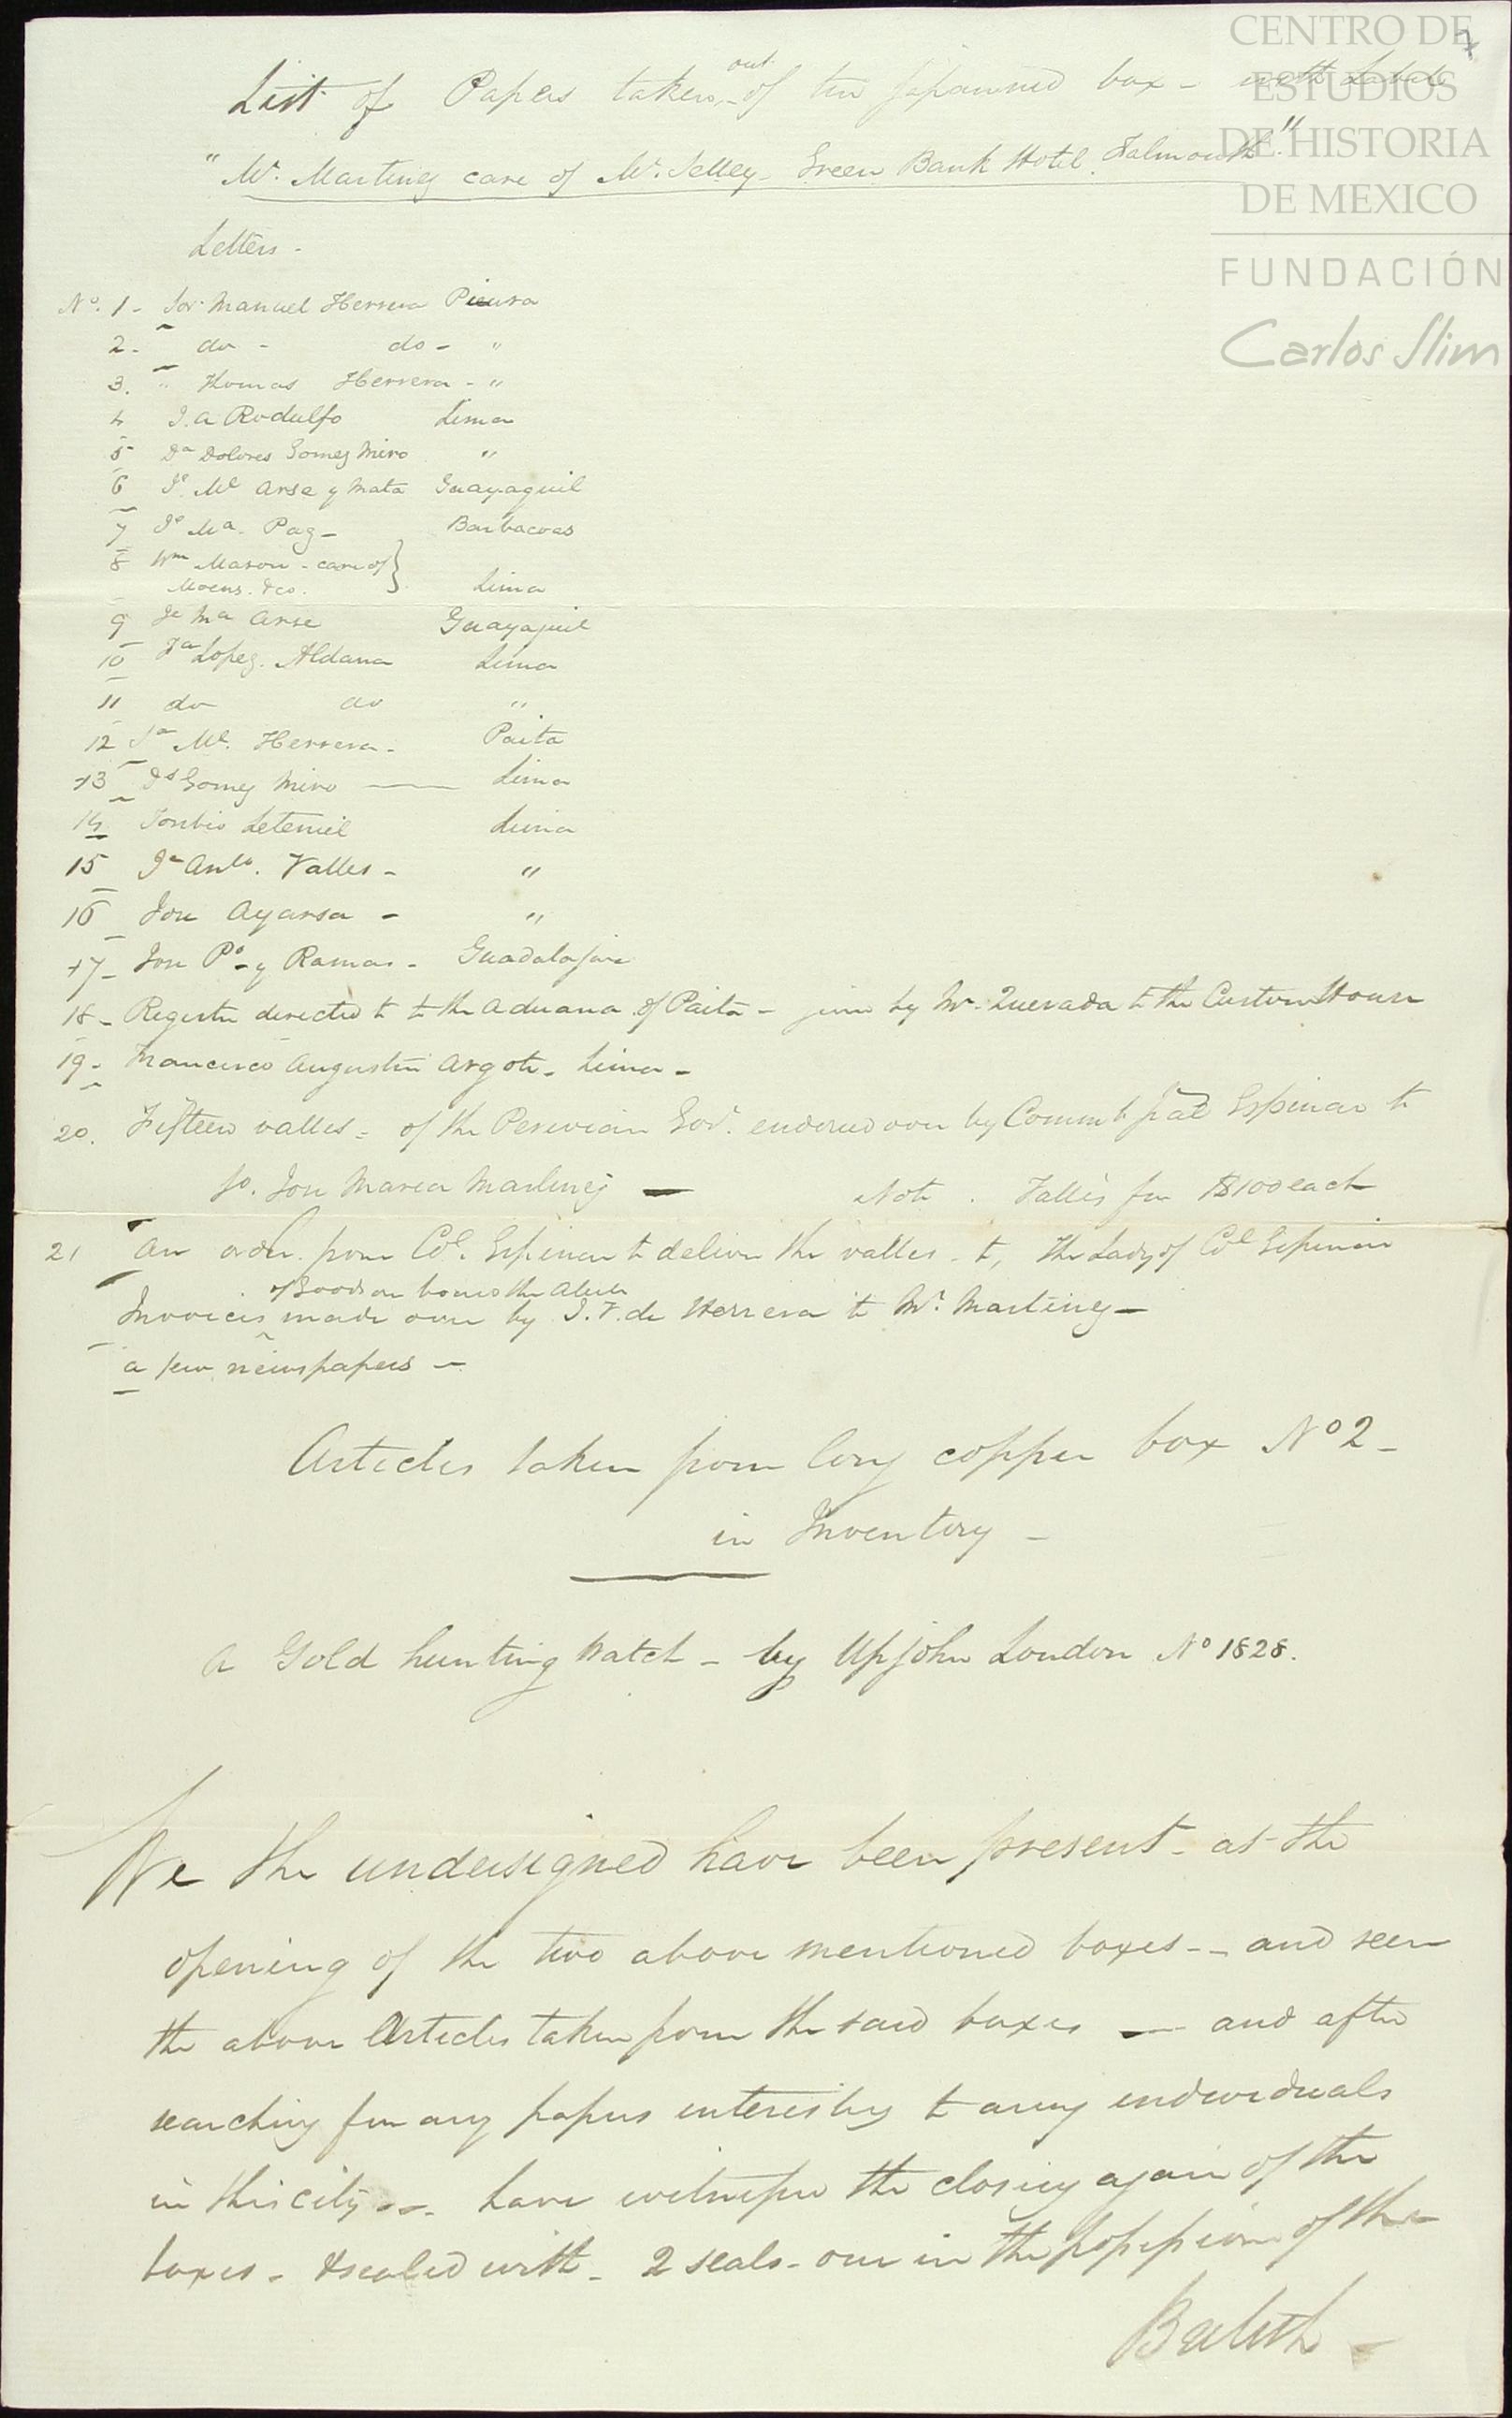 CENTRO DE
ESTUDIOS
DE HISTORIA
DE MEXICO
FUNDACIÓN
Carlos Slim
7
List of Papers taken out of tin Japanned box - with Label
"Mr. Martinez care of Mr. Selley - Green Bank Hotel. Falmouth"
Letters -
No. 1 - Sor. Manuel Herrera Piura
2 - do - do - "
3. " Thomas Herrera - "
4 J. A Rodulfo Lima
5 Da Dolores Gomez Miro "
6 Je. Ml Arse y Mata Guayaquil
7 Je Ma. Paz - Barbacoas
8 Wm Mason - care of }
Moens. & co. Lima
9 Je Ma Arse Guayaquil
10 Fa Lopez. Aldana Lima
11 do do "
12 Ml. Herrera - Paita
13 Ds Gomez Miro — Lima
14 Toribio Lima
15 Je Anto. Valles - "
16 Jose Ayarsa - "
17 - Jose Po - y Ramas - Guadalajara
18 - Register directed to to the Aduana of Paita - given by Mr. Quevada to the Custom House
19 - Francisco Augustin Argote - Lima -
20. Fifteen valles - of the Peruvian Govt. endorsed over by Espinar to
Jo. Jose Maria Martinez — Note . Valles for $100 each
21 An order from Col. Espinar to deliver the valles - to, the Lady of Col Espinar
of Goods on board the
Invoices made over by J. F. de Herrera to Mr. Martinez -
a few newspapers -
Articles taken from long copper box No 2 -
in Inventory -
A Gold hunting Watch - by Upjohn London No 1828.
We the undersigned have been present - at the
opening of the two above mentioned boxes - - and seen
the above Articles taken from the said boxes — and after
searching for any papers interesting to any individuals
in this city - - have witnessed the closing again of the
boxes - & sealed with - 2 seals - one in the possession of the
British -